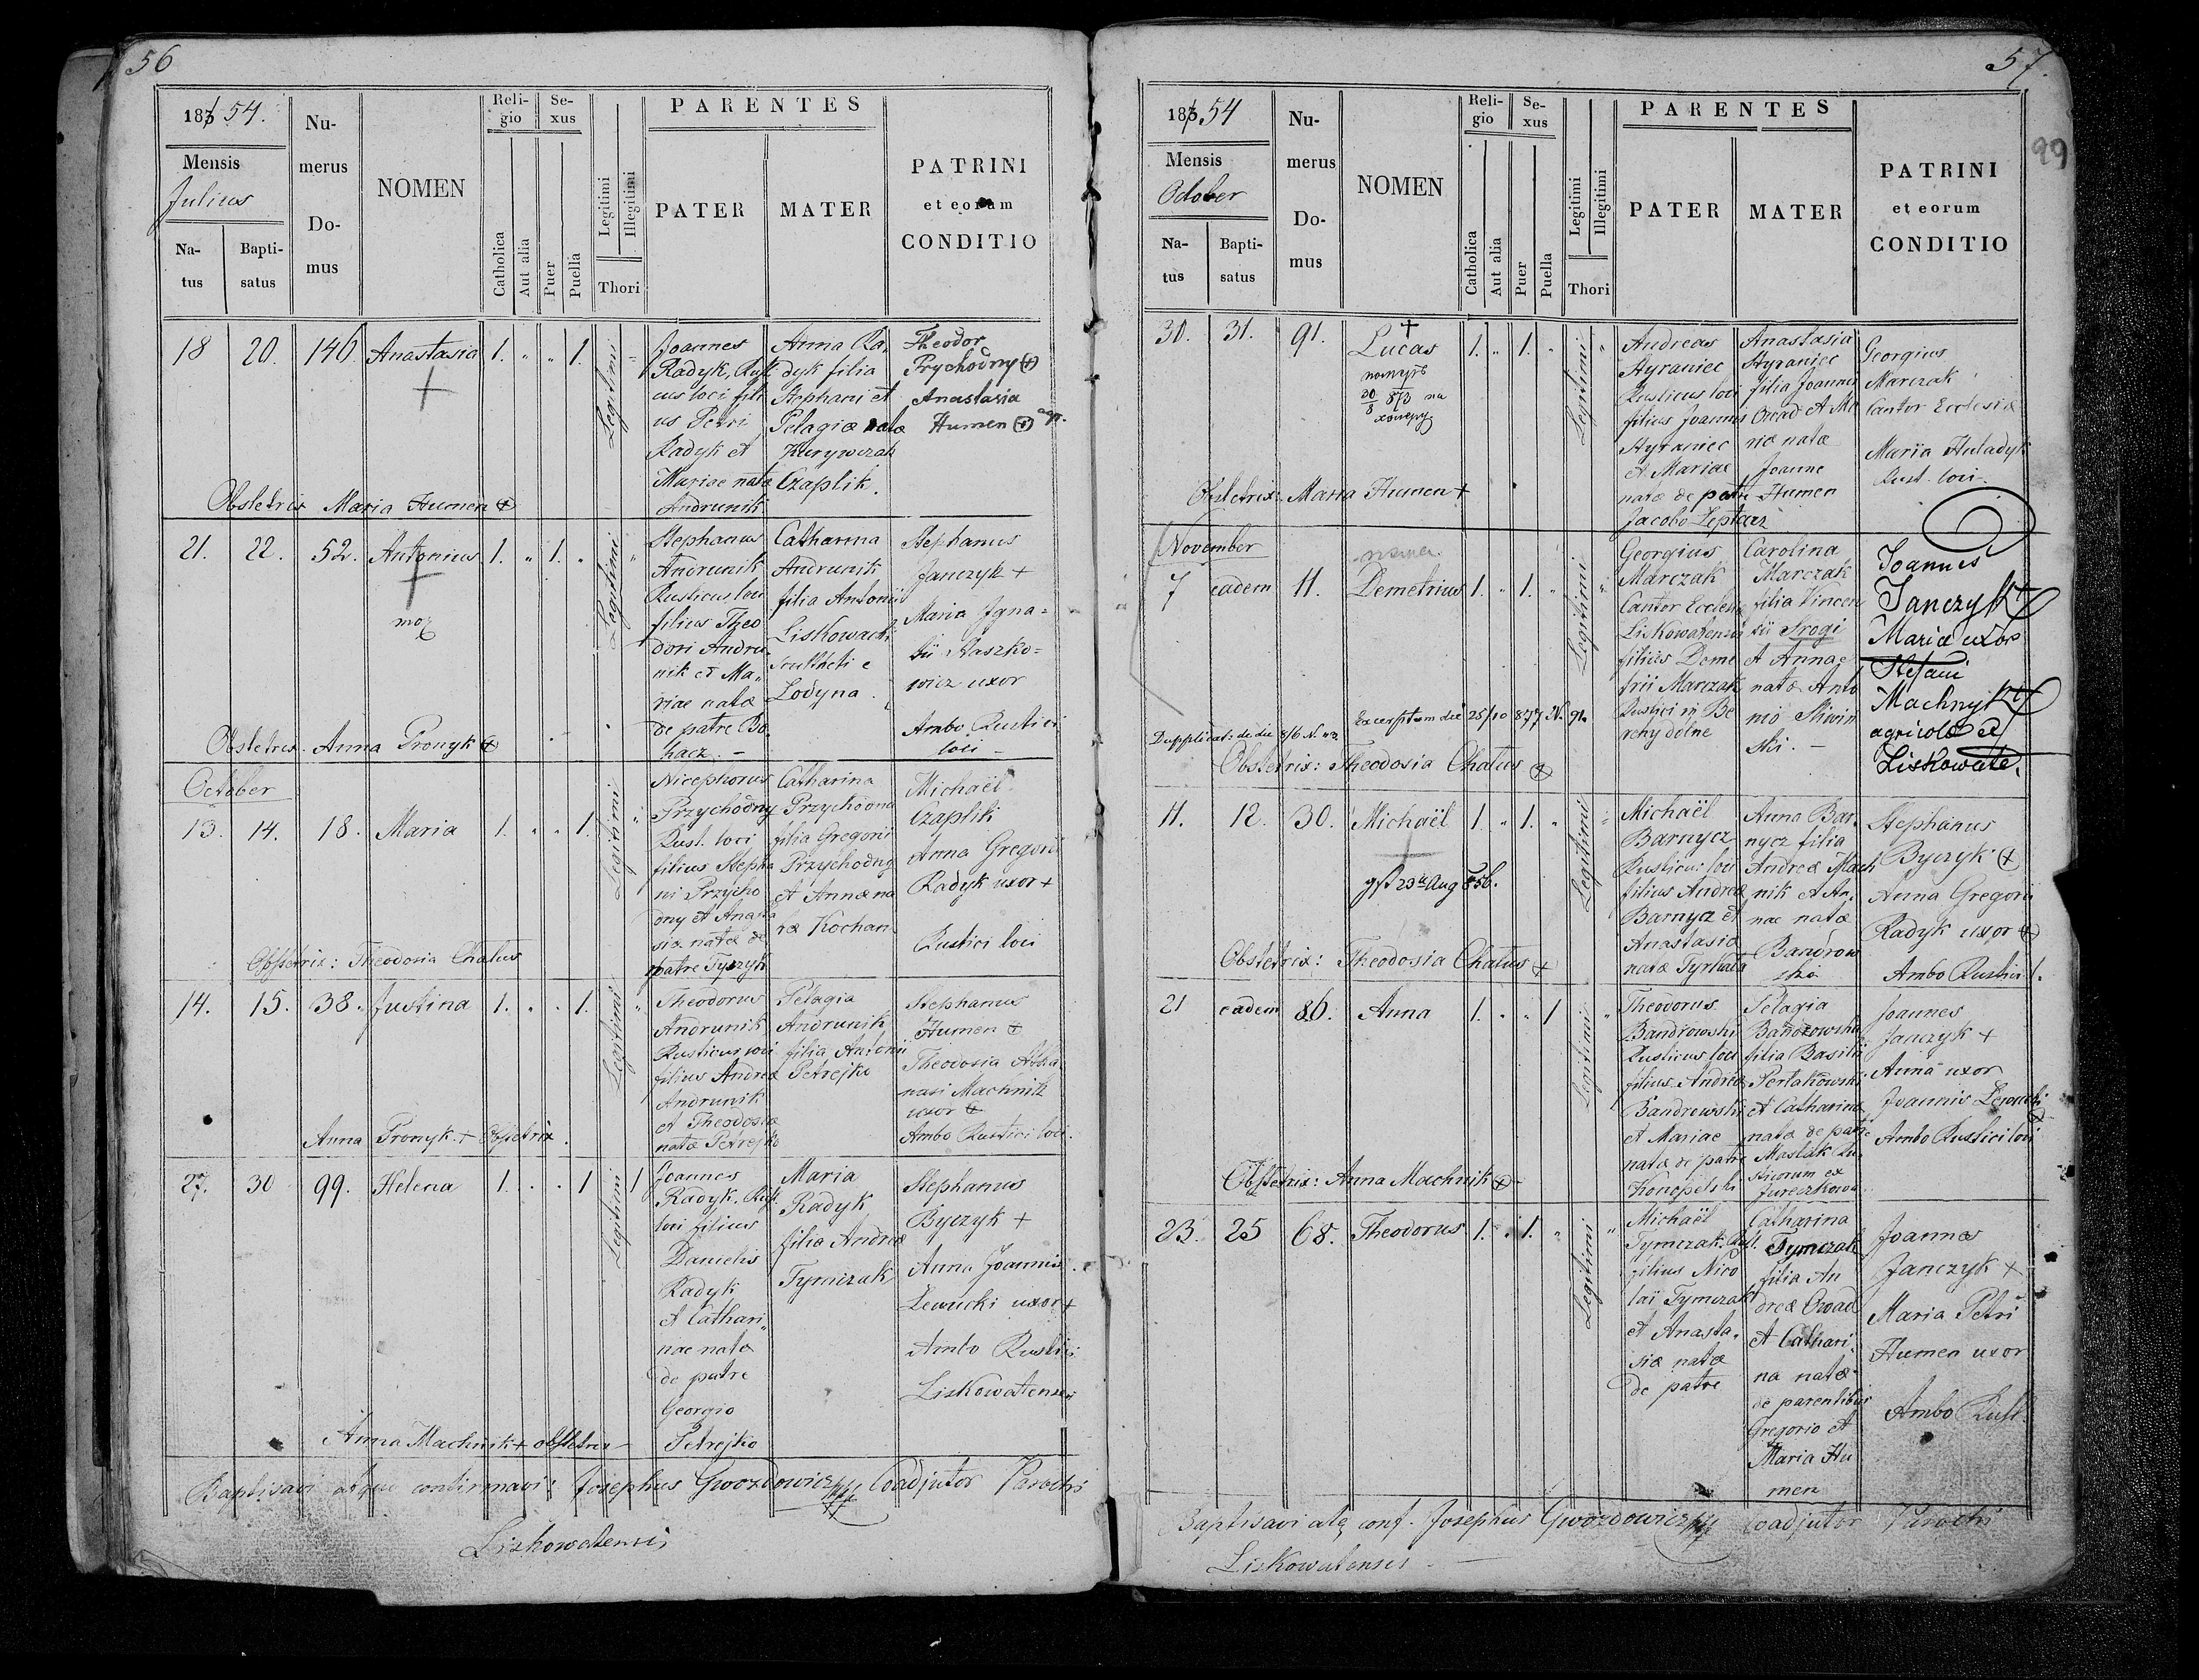 56
1854.
Mensis
Julius
Natus
Baptisatus
Numerus Domus
NOMEN
Religio
Catholica
Aut alia
Sexus
Puer
Puella
Legitimi
Illegitimi
Thori
PARENTES
PATER
MATER
PATRINI
et eorum
CONDITIO
18 20. 146. Anastasia 1. " " 1. Legitimi "
Joannes
Radyk, Rusti
cus loci fili
us Petri
Radyk et
Mariae nata
Andrunik
Anna Ra,
dyk filia
Stephani et
Pelagiæ natæ
Czaplik.
Theodor
Prychodny (+)
Anastasia
Humen (+)
Obstetrix Maria Humen +
21. 22. 52. Antonius 1. " 1. " Legitimi "
Stephanus
Andrunik
Rusticus loci
filius Theo
dori Andru
nik et Ma,,
riae natæ
de patre Bo
hacz. –
Catharina
Andrunik
filia Antonii
Liskowacki
Sculteti e
Lodyna.
Stephanus
Janczyk +
Maria Igna=
tii Raszko=
wicz uxor
Ambo Rustici
loci –
Obstetrix. Anna Pronyk +
October
13. 14. 18. Maria 1. " " 1. Legitimi "
Nicephorus
Przychodny
Rust. loci
filius Stepha
ni Przycho
dny et Anasta
siæ natæ de
patre Tyszyk
Catharina
Przychodna
filia Gregorii
Przychodny
et Annæ na
tæ Kochan
Michaël
Czaplik
Anna Gregorii
Radyk uxor +
Rustici loci
Obstetrix: Theodosia Chatus
14. 15. 38. Justina 1. " " 1. Legitimi "
Theodorus
Andrunik
Rusticus loci
filius Andreæ
Andrunik
et Theodosiæ
natæ Petrejko
Pelagia
Andrunik
filia Antonii
Petrejko
Stephanus
Humen +
Theodosia Atha
nasi Machnik
uxor +
Ambo Rustici loci.
Anna Pronyk + Obstetrix.
27. 30 99. Helena 1. . . 1 Legitimi 1
Joannes
Radyk. Rust.
loci filius
Danielis
Radyk
et Cathari,,
nae natæ
de patre
Georgio
Petrejko
Maria
Radyk
filia Andreæ
Tymczak
Stephanus
Byczyk +
Anna Joannis
Lewucki uxor +
Ambo Rustici
Liskowatenses
Anna Machnik + obstetrix –
Baptisavi atque confirmavi: Josephus Gwozdowicz Coadjutor Parochi
Liskowatensis
57.
99
1854
Mensis
October
Natus
Baptisatus
Numerus Domus
NOMEN
Religio
Catholica
Aut alia
Sexus
Puer
Puella
Legitimi
Illegitimi
Thori
PARENTES
PATER
MATER
PATRINI
et eorum
CONDITIO
30. 31. 91. Lucas 1. " 1. " Legitimi "
+
20/8 873 на
холеру
Andreas
Hyraniec
Rusticus loci
filius Joannis
Hyraniec
et Mariae
natæ de patre
Jacobo Leptarz
Anastasia
Hyraniec
filia Joannis
Owad et Ma
riæ natæ
Joanne
Humen
Georgius
Marczak
Cantor Ecclesiæ
Maria Huladyk
Rust. loci.
Obstetrix: Maria Humen +
November
7 eadem 11. Demetrius 1. " 1. " Legitimi "
Georgius
Marczak
Cantor Ecclesiæ
Liskowatensis
filius Deme
trii Marczak
Rustici in Be
rehy dolne
Carolina
Marczak
filia Vincen
tii Srogi
et Annae
natæ Anto
nio Sliwin
ski. –
Joannes
Janczyk
Maria uxor
Stefani
Machnyk
agricolæ de
Liskowate.
Excerptum die 25/10 877 N. 91.
Obstetrix: Theodosia Chatus +
11. 12. 30. Michaël 1. " 1. " Legitimi "
+ 23 Aug 856.
Michaël
Barnycz
Rusticus loci
filius Andreæ
Barnycz et
Anastasiæ
natæ Tyrkała
Anna Bar,
nycz filia
Andreæ Mach
nik et An,
nae natæ
Bandrow
ska
Stephanus
Byczyk (+)
Anna Gregorii
Radyk uxor +
Ambo Rustici l.
Obstetrix: Theodosia Chatus +
21 eadem 86. Anna 1. " " 1 Legitimi "
Theodorus
Bandrowski
Rusticus loci
filius Andreæ
Bandrowski
et Mariae
natæ de patre
Konopelski
Pelagia
Bandrowska
filia Basilii
Pertakowski
et Catharinæ
natæ de patre
Maslak Ru,
sticorum ex
Jureczkowa
Joannes
Janczyk +
Anna uxor
Joannis Lewucki
+
Ambo Rustici loci
Obstetrix: Anna Machnik +
23. 25 68. Theodorus 1. " 1. " Legitimi "
Michaël
Tymczak. Rust.
filius Nico
lai Tymczak
et Anasta,
siæ natæ
de patre
Catharina
Tymczak
filia An
dreæ Owad
et Cathari,
na natæ
de parentibus
Gregorio et
Maria Hu
men
Joannes
Janczyk +
Maria Petri
Humen uxor
Ambo Rust.
Baptisavi atq conf. Josephus Gwozdowicz Coadjutor Parochi
Liskowatensis –